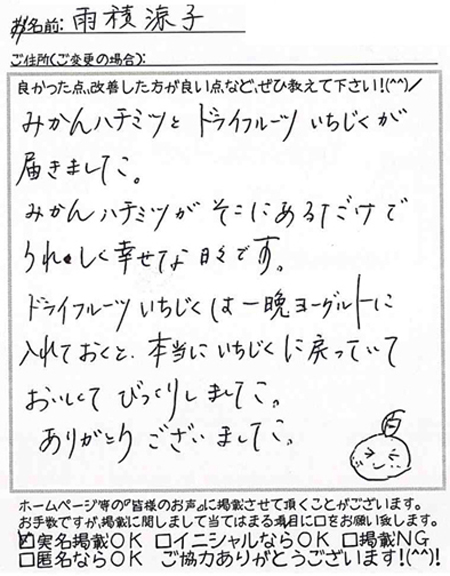 お名前: 雨積涼子
ご住所(ご変更の場合):
良かった点、改善した方が良い点など、ぜひ教えて下さい!(^^)/
みかんハチミツと ドライフルーツ いちじくが
届きました。
みかんハチミツが そこにあるだけで
うれしく幸せな日々です。
ドライフルーツ いちじくは一晩ヨーグルトに
入れておくと、本当にいちじくに戻っていて
おいしくて びっくりしました。
ありがとう ございました。
ホームページ等の『皆様のお声』に掲載させて頂くことがございます。
お手数ですが、掲載に関しまして当てはまる項目に☑をお願い致します。
☑実名掲載OK □イニシャルならOK □掲載NG
□匿名ならOK ご協力ありがとうございます!(^^)!